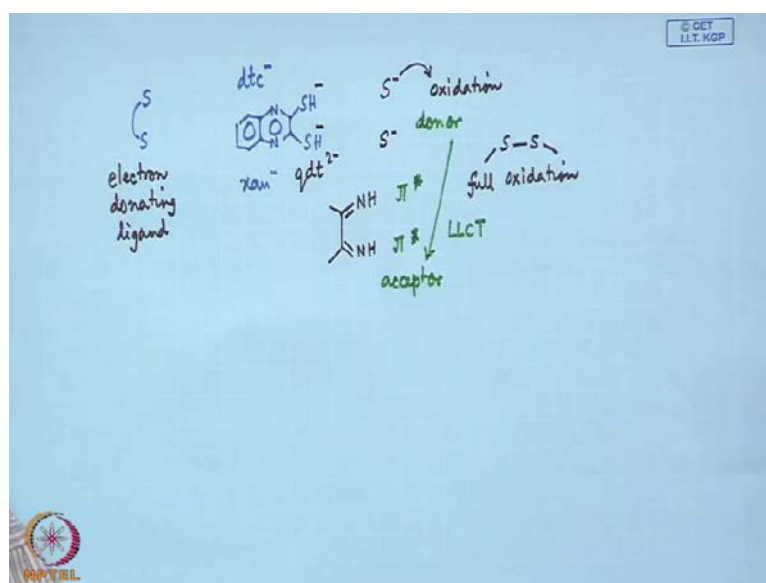 © CET
I.I.T. KGP
dtc⁻
S
S
electron
donating
ligand
N
SH⁻
N
SH⁻
xan⁻
qdt²⁻
S⁻
oxidation
S⁻
donor
S—S
full oxidation
NH
π*
NH
π*
LLCT
acceptor
NPTEL